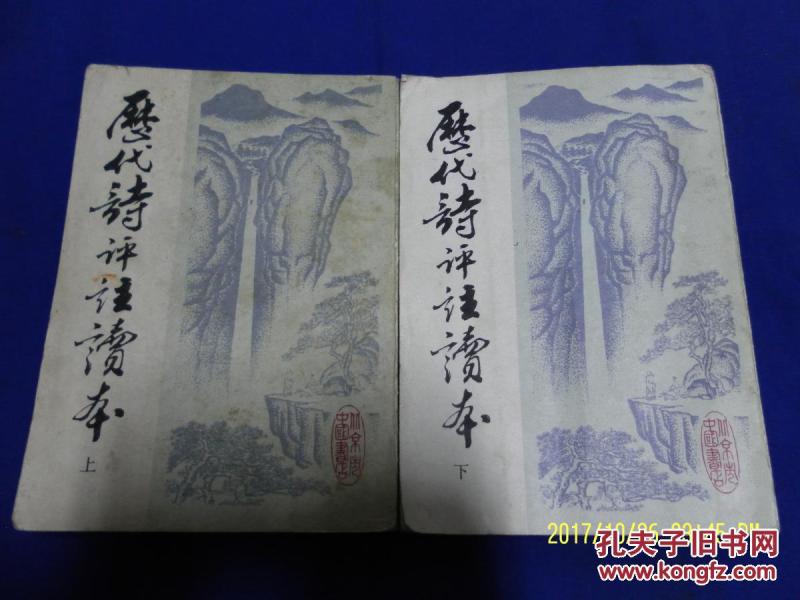 歷代詩评註讀本
上
歷代詩评註讀本
下
北京市
中國書店
北京市
中國書店
孔夫子旧书网
kongfz.com